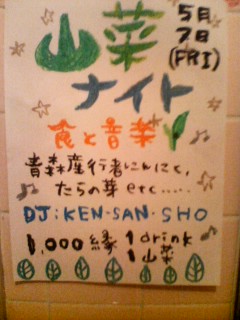 山菜
5月
7日
(FRI)
ナイト
食と音楽
青森産行者にんにく、
たらの芽 etc.....
DJ:KEN-SAN-SHO
1,000縁 1drink
1山菜